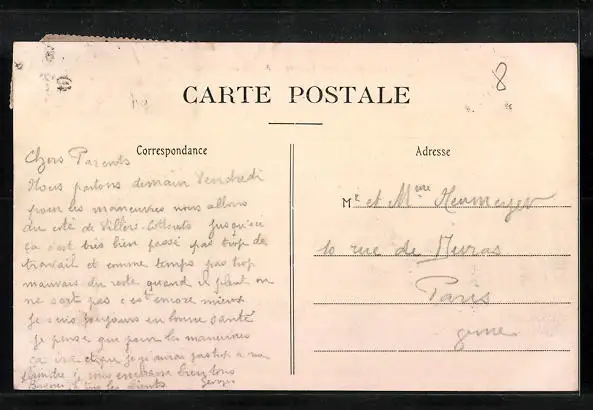 8
CARTE POSTALE
Correspondance
Adresse
Chers Parents
Nous partons demain Vendredi
pour les manœuvres nous allons
du coté de Villers-Cotterets jusqu'ici
ça c'est très bien passé pas trop de
travail et comme temps pas trop
mauvais du reste quand il pleut on
ne sort pas c'est encore mieux
Je suis toujours en bonne santé
Je pense que pour les manœuvres
ça ira et que je n'aurai pas trop a me
plaindre je vous embrasse bien tous
Georges
Mr et Mme
10 rue de
Paris